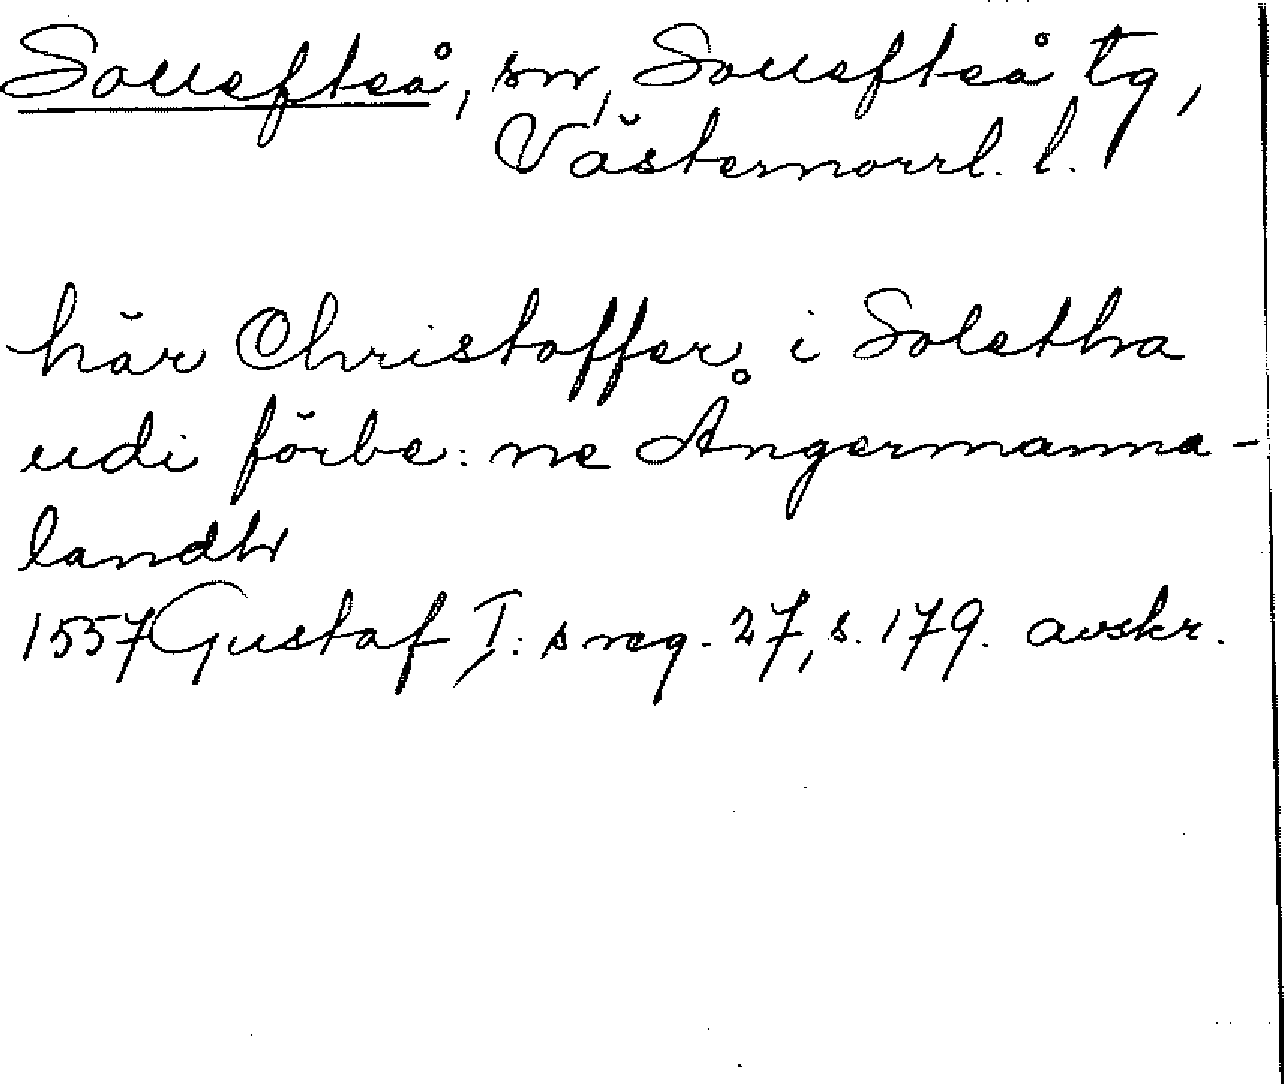 Sollefteå, sn, Sollefteå tg,
Västernorrl. l.
här Christoffer i Soletha
udi förbe:ne Ångermanna-
landh
1557 Gustaf I:s reg. 27, s. 179. avskr.